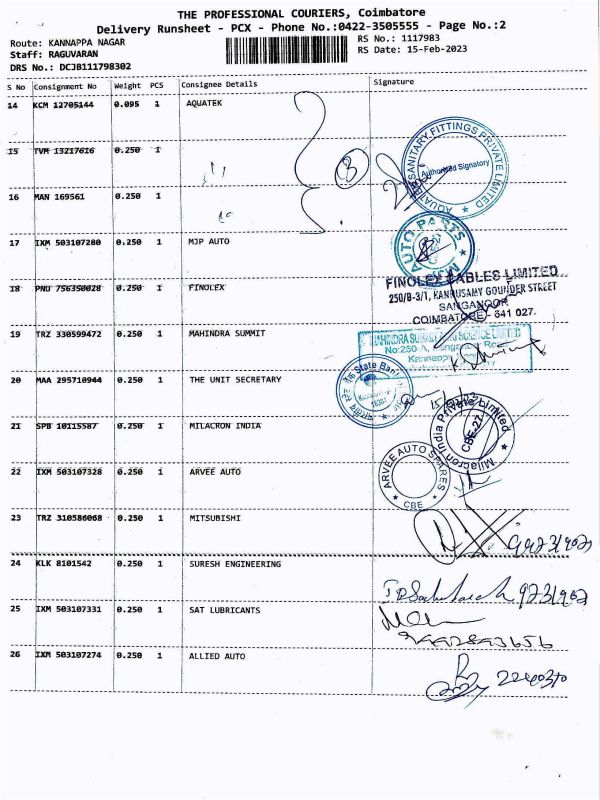 THE PROFESSIONAL COURIERS, Coimbatore
Delivery Runsheet - PCX - Phone No.:0422-3505555 - Page No.:2
Route: KANNAPPA NAGAR RS No.: 1117983
Staff: RAGUVARAN RS Date: 15-Feb-2023
DRS No.: DCJB111798302
S No Consignment No Weight PCS Consignee Details Signature
14 KCM 12705144 0.095 1 AQUATEK
15 TVM 13217616 0.250 1
3
AQUATEK SANITARY FITTINGS PRIVATE LIMITED
Authorised Signatory
16 MAN 169561 0.250 1
17 IXM 503107280 0.250 1 MJP AUTO
AUTO PARTS
18 PNU 756350028 0.250 1 FINOLEX
FINOLEX CABLES LIMITED
250/B-3/1, KANNUSAMY GOUNDER STREET
SANGANOOR
COIMBATORE - 641 027.
19 TRZ 330599472 0.250 1 MAHINDRA SUMMIT
No:250-A, Sanganoor Ro
Kannappa
20 MAA 295710944 0.250 1 THE UNIT SECRETARY
State Bank
21 SPB 10115587 0.250 1 MILACRON INDIA
Milacron India Private Limited
CBE-27
22 IXM 503107328 0.250 1 ARVEE AUTO
ARVEE AUTO SPARES
CBE
23 TRZ 310586068 0.250 1 MITSUBISHI
24 KLK 8101542 0.250 1 SURESH ENGINEERING
25 IXM 503107331 0.250 1 SAT LUBRICANTS
9442893656
26 IXM 503107274 0.250 1 ALLIED AUTO